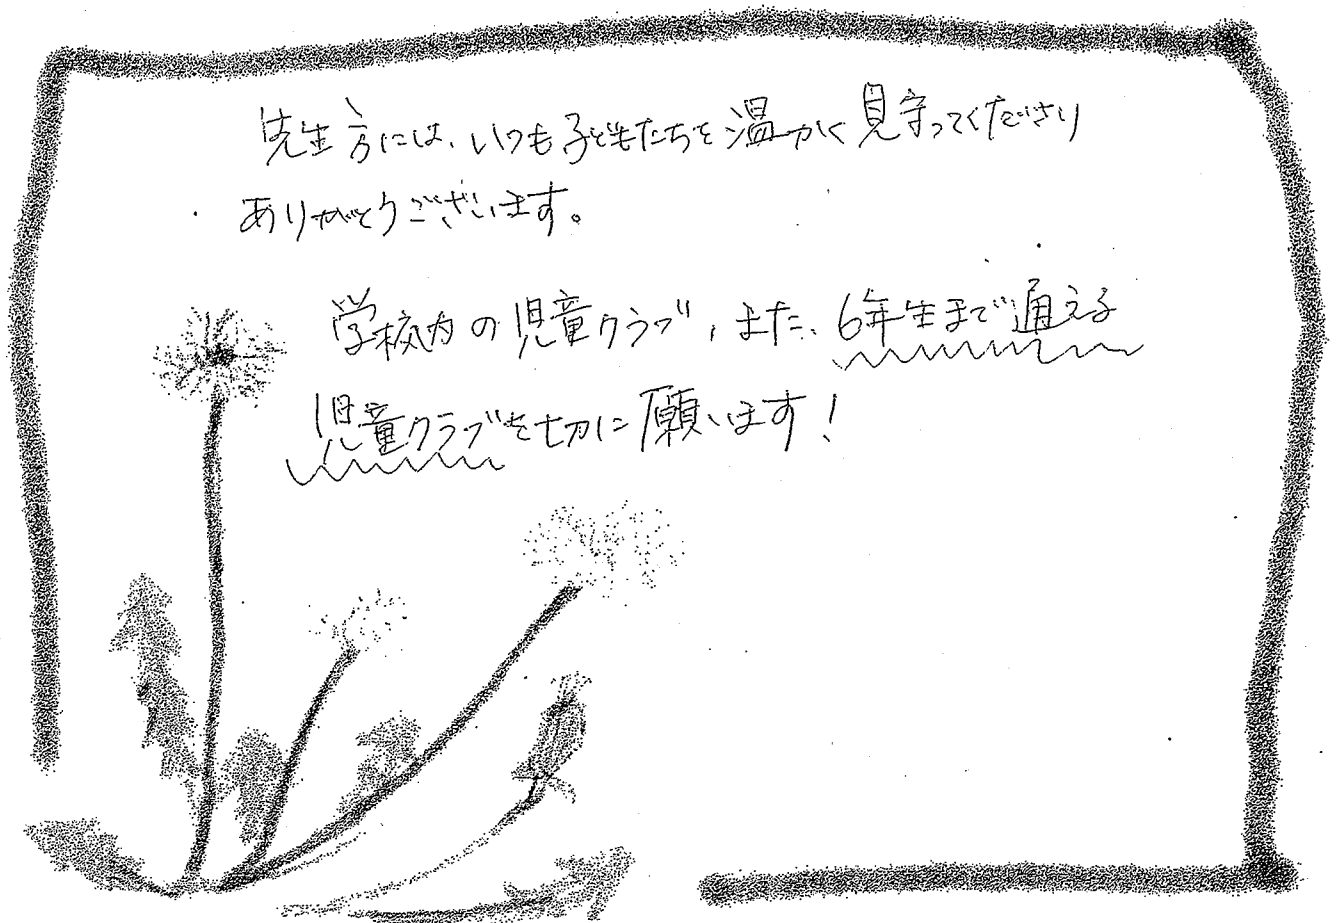 先生方には、いつも子どもたちを温かく見守ってくださり
ありがとうございます。
学校内の児童クラブ、また、6年生まで通える
児童クラブを切に願います!